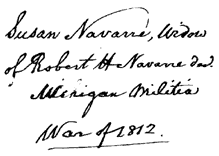 Susan Navarre, Widow
of Robert H Navarre
Michigan Militia
War of 1812.